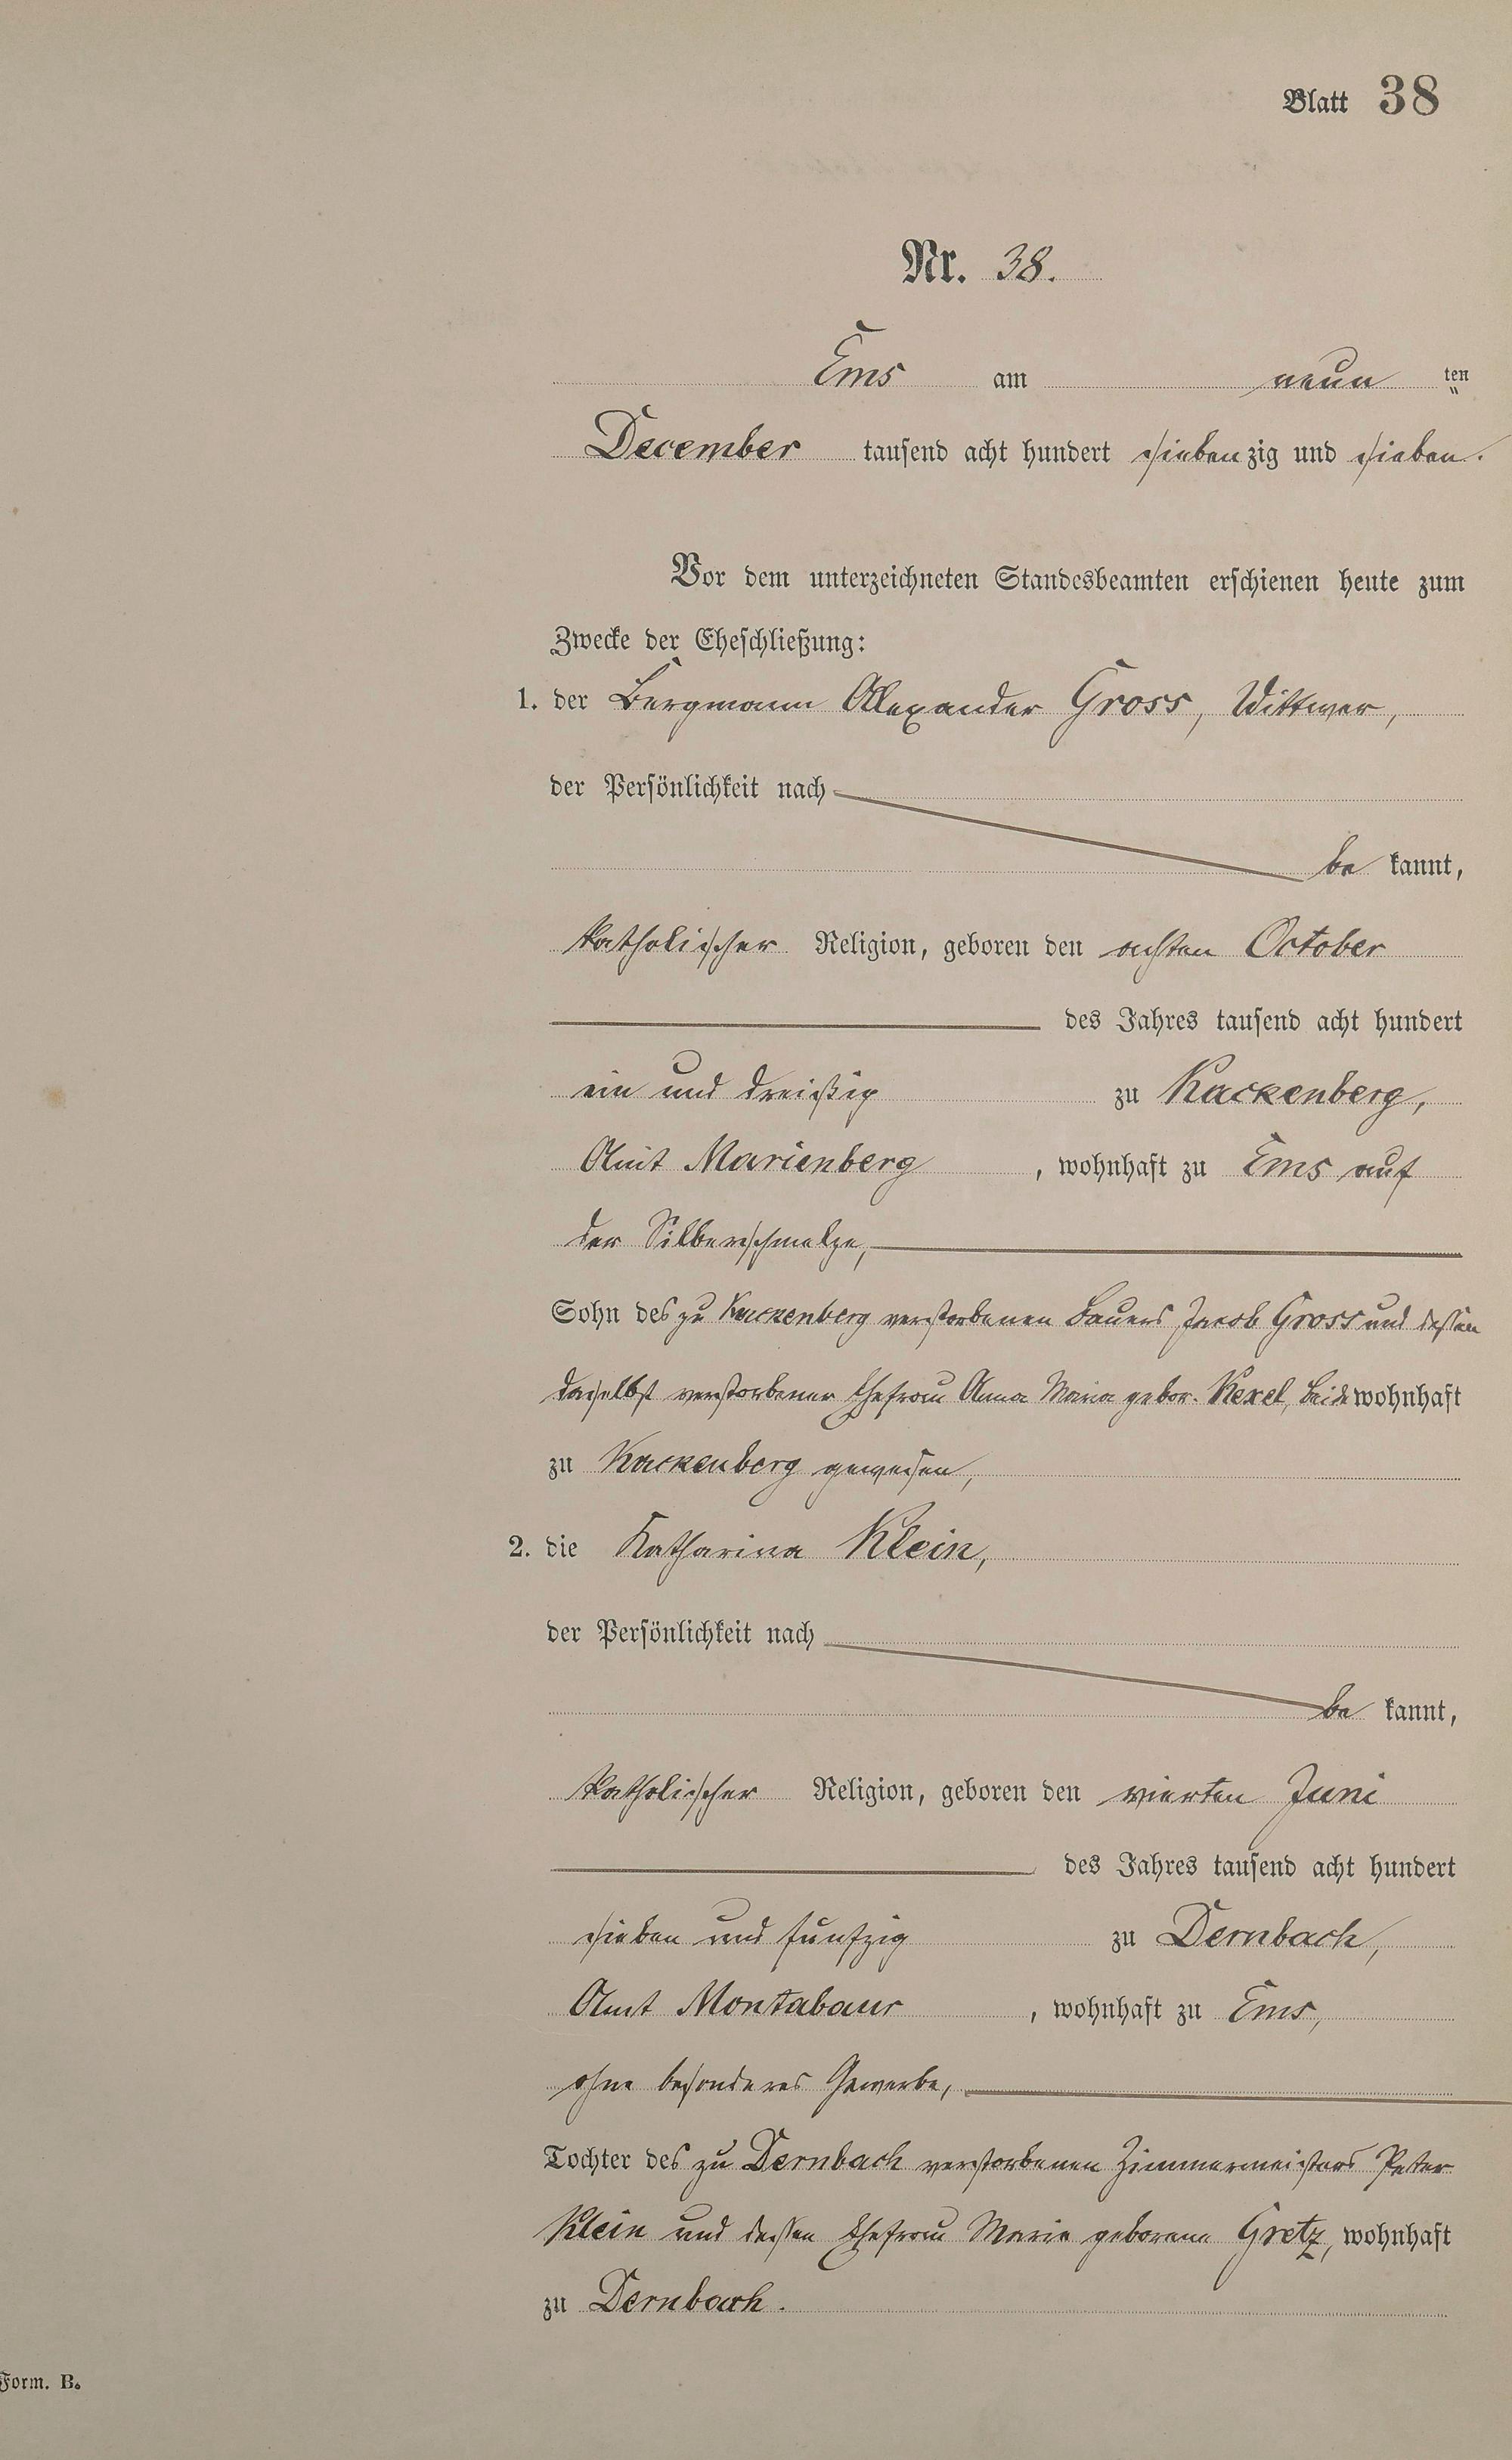 Blatt 38
Nr. 38.
Ems am neun ten
December tausend acht hundert siebenzig und sieben.
Vor dem unterzeichneten Standesbeamten erschienen heute zum
Zwecke der Eheschließung:
1. der Bergmann Alexander Gross, Wittwer,
der Persönlichkeit nach
be kannt,
katholischer Religion, geboren den achten October
des Jahres tausend acht hundert
ein und dreißig zu Kackenberg,
Amt Marienberg , wohnhaft zu Ems auf
der Silberschmelze,
Sohn des zu Kackenberg verstorbenen Bauers Jacob Gross und dessen
daselbst verstorbener Ehefrau Anna Maria gebor. Kexel, beide wohnhaft
zu Kackenberg gewesen,
2. die Katharina Klein,
der Persönlichkeit nach
be kannt,
katholischer Religion, geboren den vierten Juni
des Jahres tausend acht hundert
sieben und fünfzig zu Dernbach,
Amt Montabaur , wohnhaft zu Ems,
ohne besonderes Gewerbe,
Tochter des zu Dernbach verstorbenen Zimmermeisters Peter
Klein und dessen Ehefrau Maria geborene Gretz, wohnhaft
zu Dernbach.
Form. B.